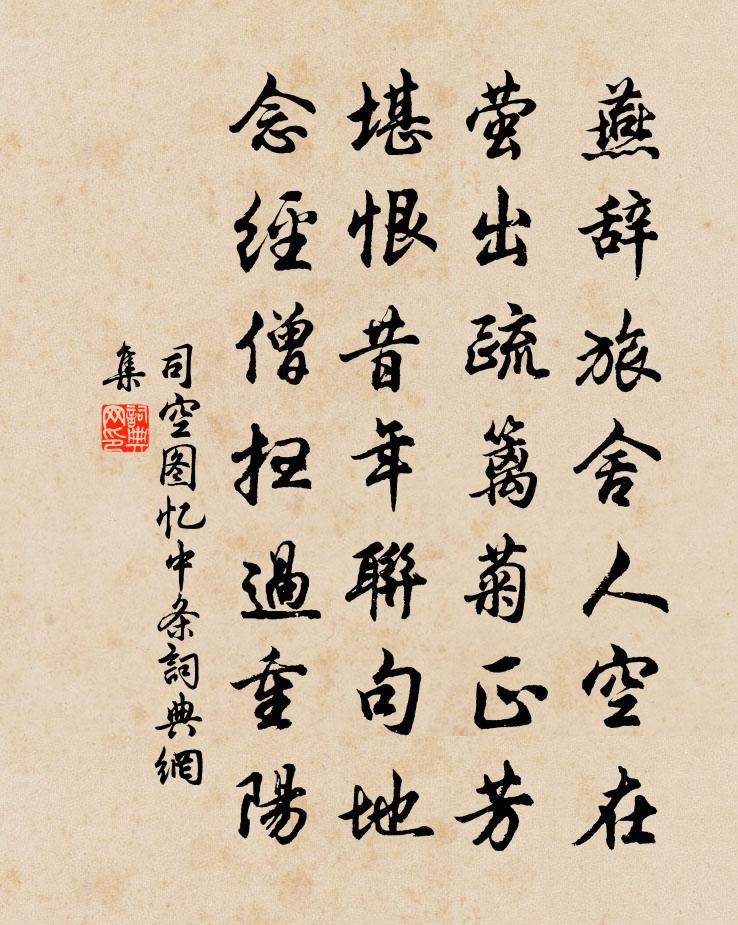 燕辞旅舍人空在
萤出疏篱菊正芳
堪恨昔年聯句地
念經僧扫過重陽
司空图忆中条詞典網
集
詞典
网印